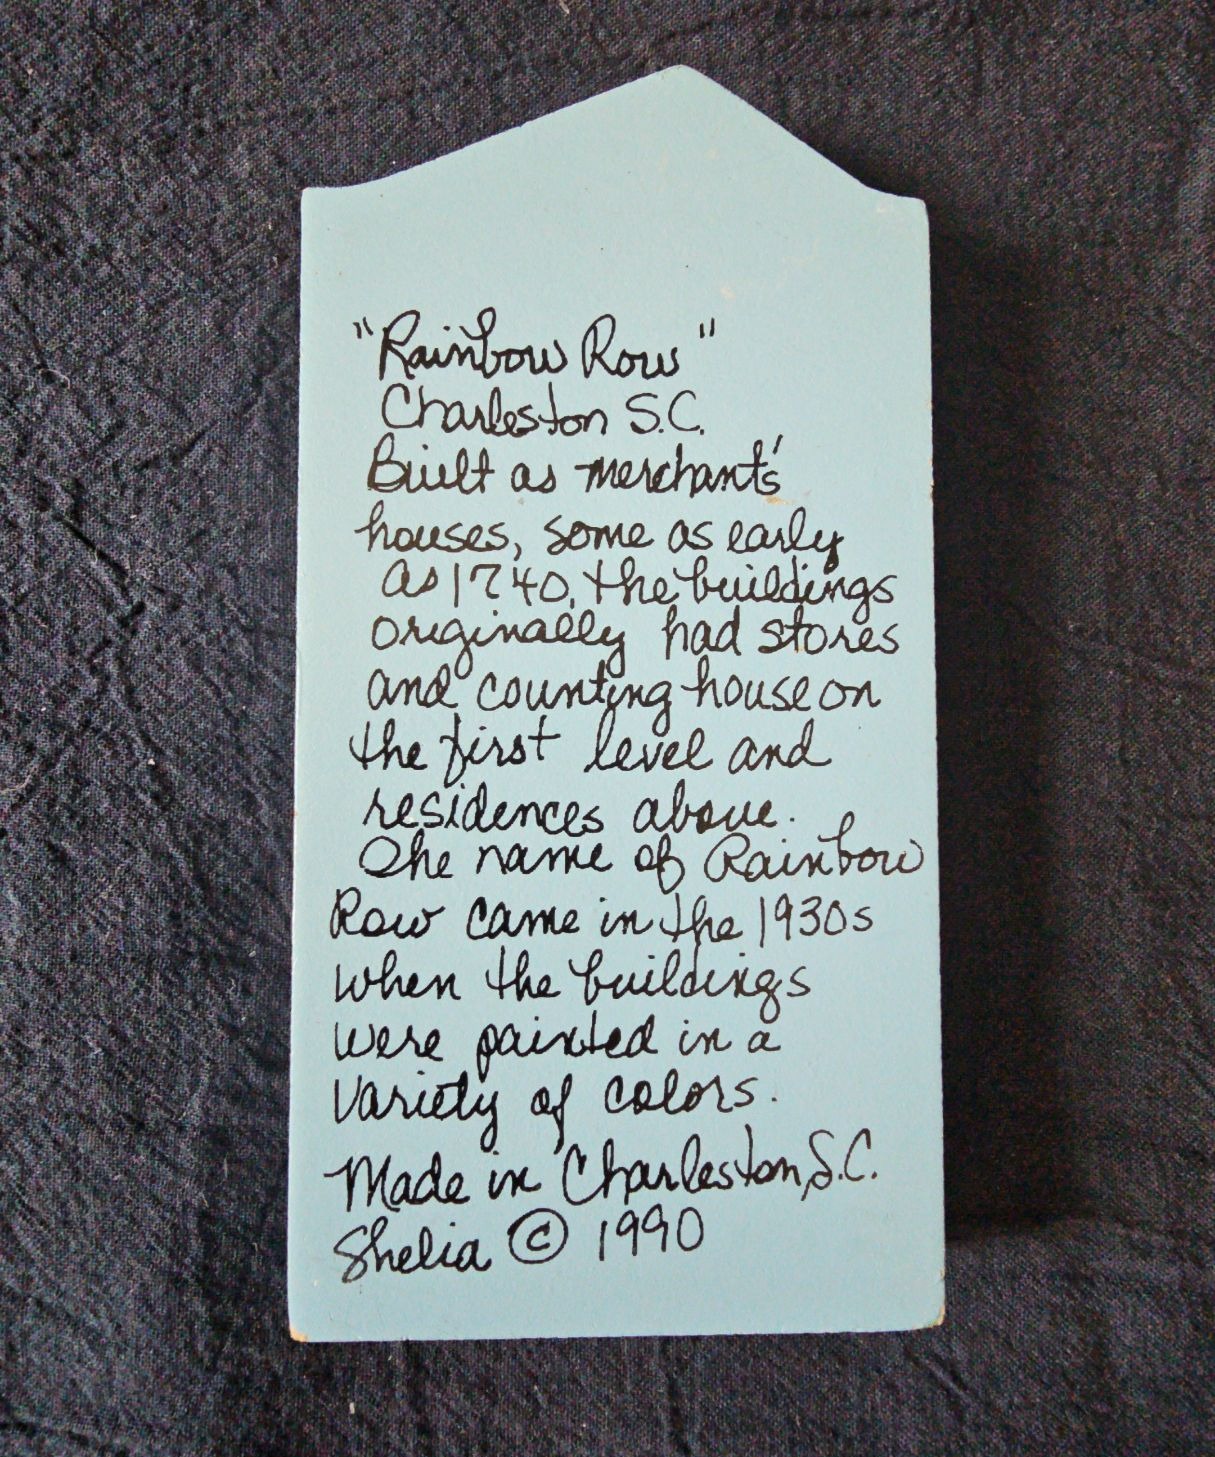 "Rainbow Row"
Charleston S.C.
Built as merchant's
houses, some as early
as 1740, the buildings
originally had stores
and counting house on
the first level and
residences above.
The name of Rainbow
Row came in the 1930s
when the buildings
were painted in a
variety of colors.
Made in Charleston, S.C.
Shelia © 1990